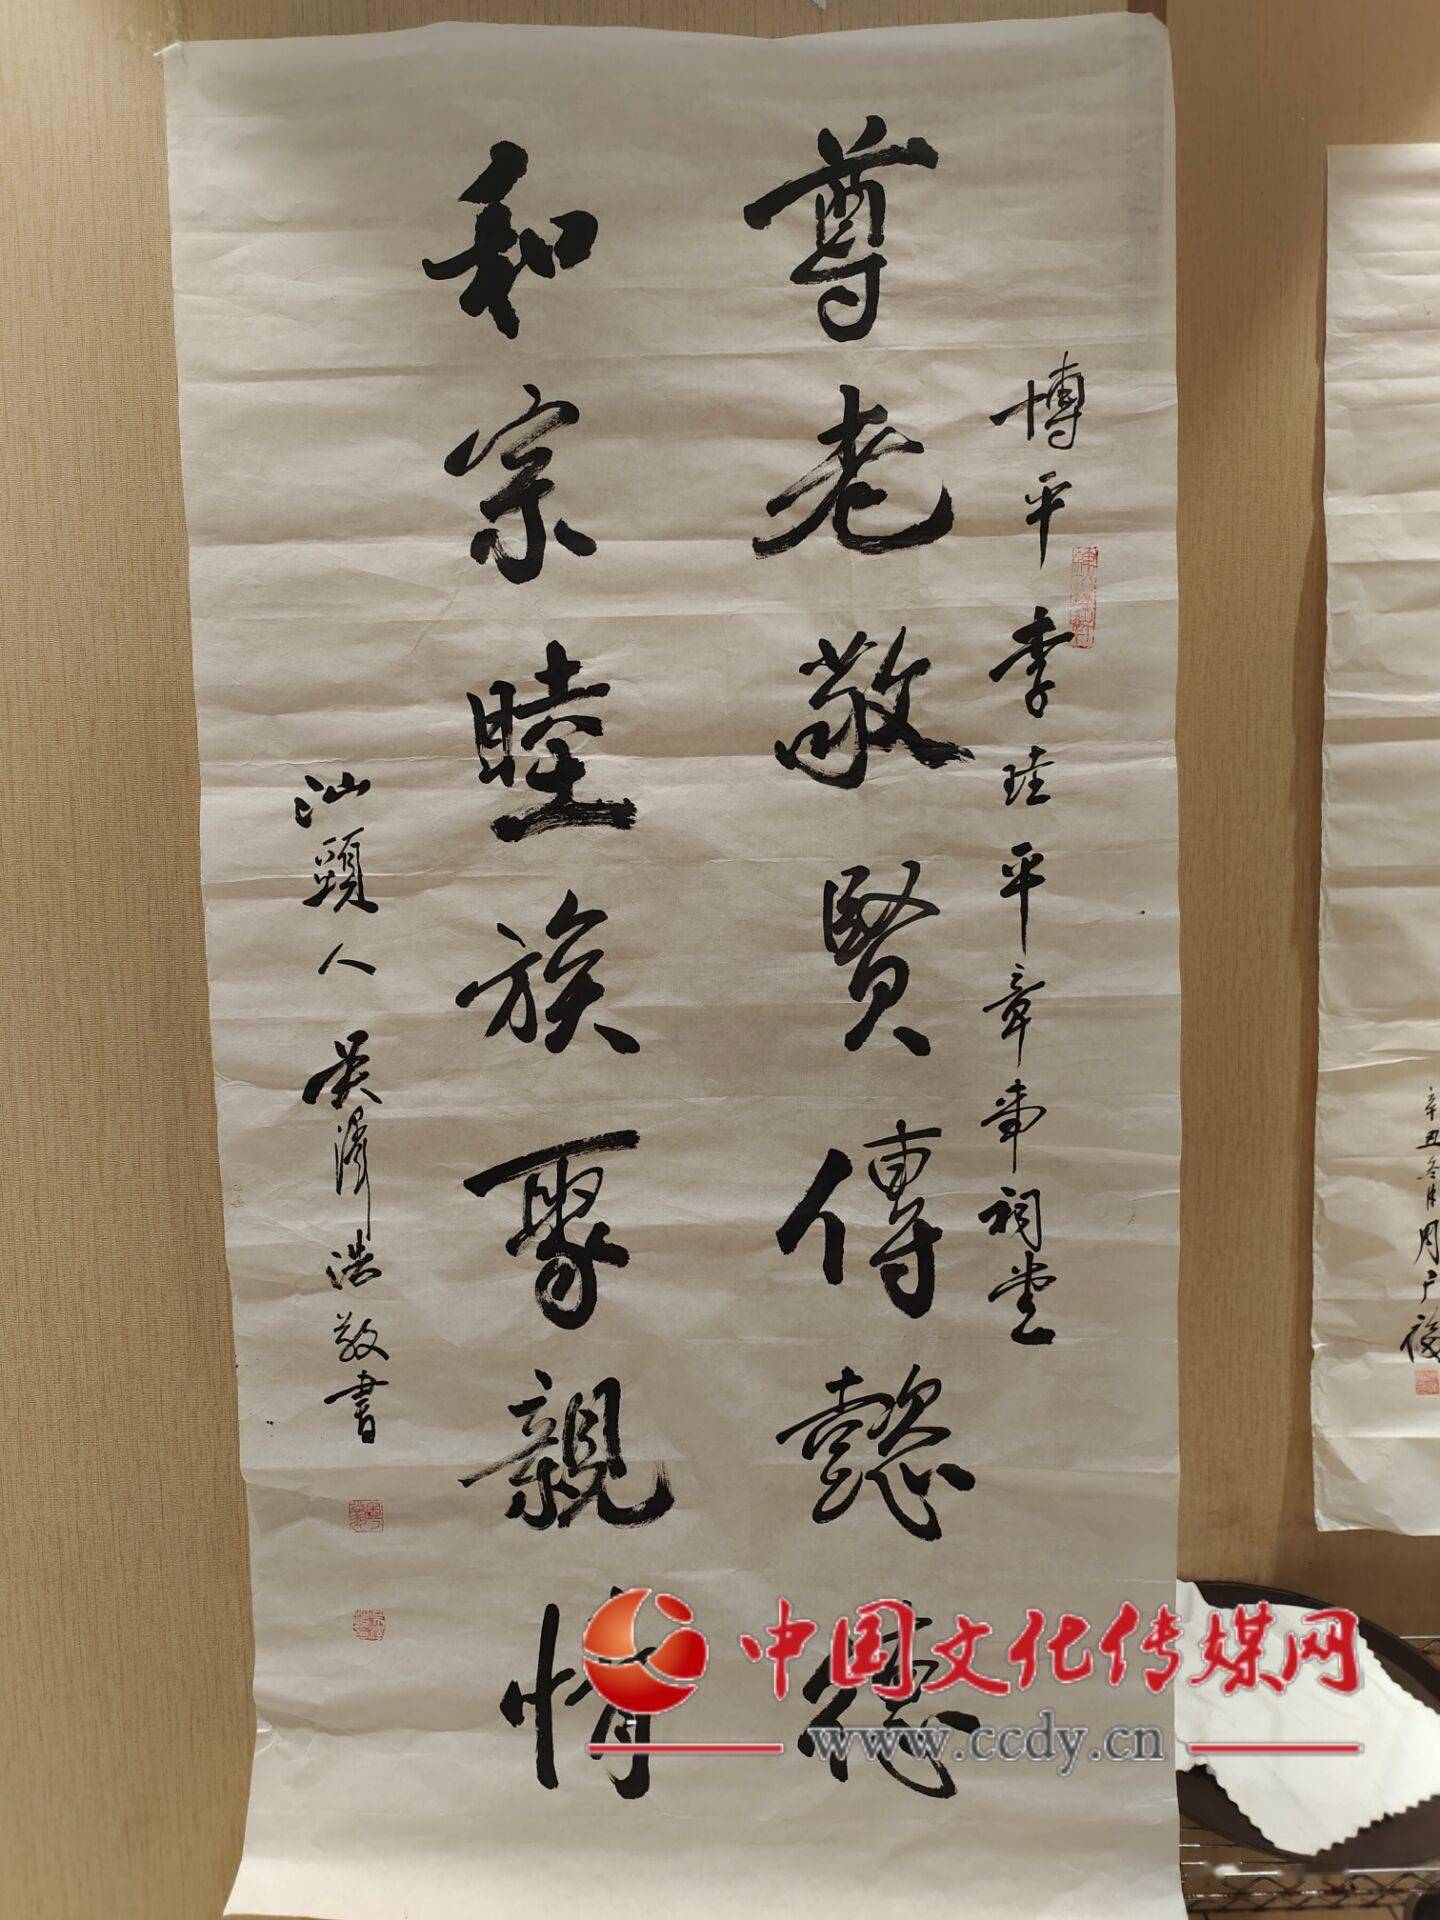 博平李珪平章事祠堂
尊老敬賢傳懿德
和宗睦族聚親情
汕頭人吴澤浩敬書
辛丑冬月周广
中国文化传媒网
www.ccdy.cn